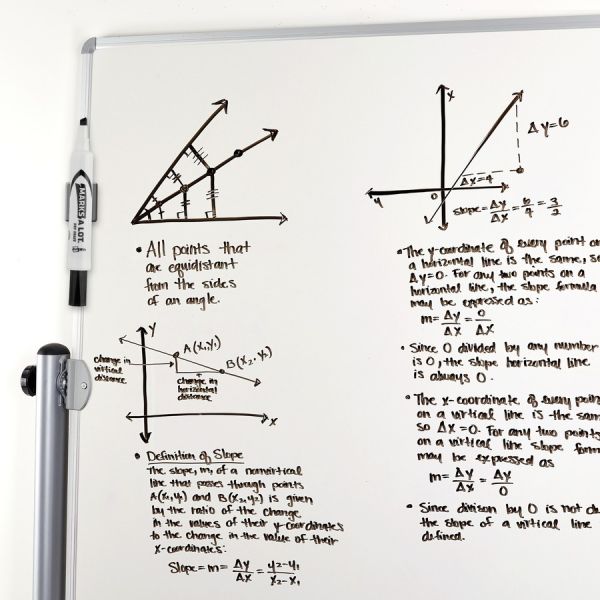 MARKS A LOT.
• All points that
are equidistant
from the sides
of an angle.
Y
A (X₁,Y₁)
B (X₂, Y₂)
change in
virtical
distance
change in
horizontal
distance
X
• Definition of Slope
The slope, m, of a nonvirtical
line that passes through points
A(X₁,Y₁) and B(X₂,Y₂) is given
by the ratio of the change
in the values of their y-coordinates
to the change in the value of their
X-coordinates:
Slope = m = ΔY/ΔX = y₂-y₁/X₂-X₁
X
ΔY=6
ΔX=4
y
0
slope = ΔY/ΔX = 6/4 = 3/2
• The y-coordinate of every point on
a horizontal line is the same, so
ΔY=0. For any two points on a
horizontal line, the slope formula
may be expressed as:
m = ΔY/ΔX = 0/ΔX
• Since 0 divided by any number
is 0, the slope horizontal line
is always 0.
• The X-coordinate of every point
on a virtical line is the same
so ΔX=0. For any two points
on a virtical line slope form
may be expressed as
m = ΔY/ΔX = ΔY/0
• Since divison by 0 is not de
the slope of a virtical line
defined.